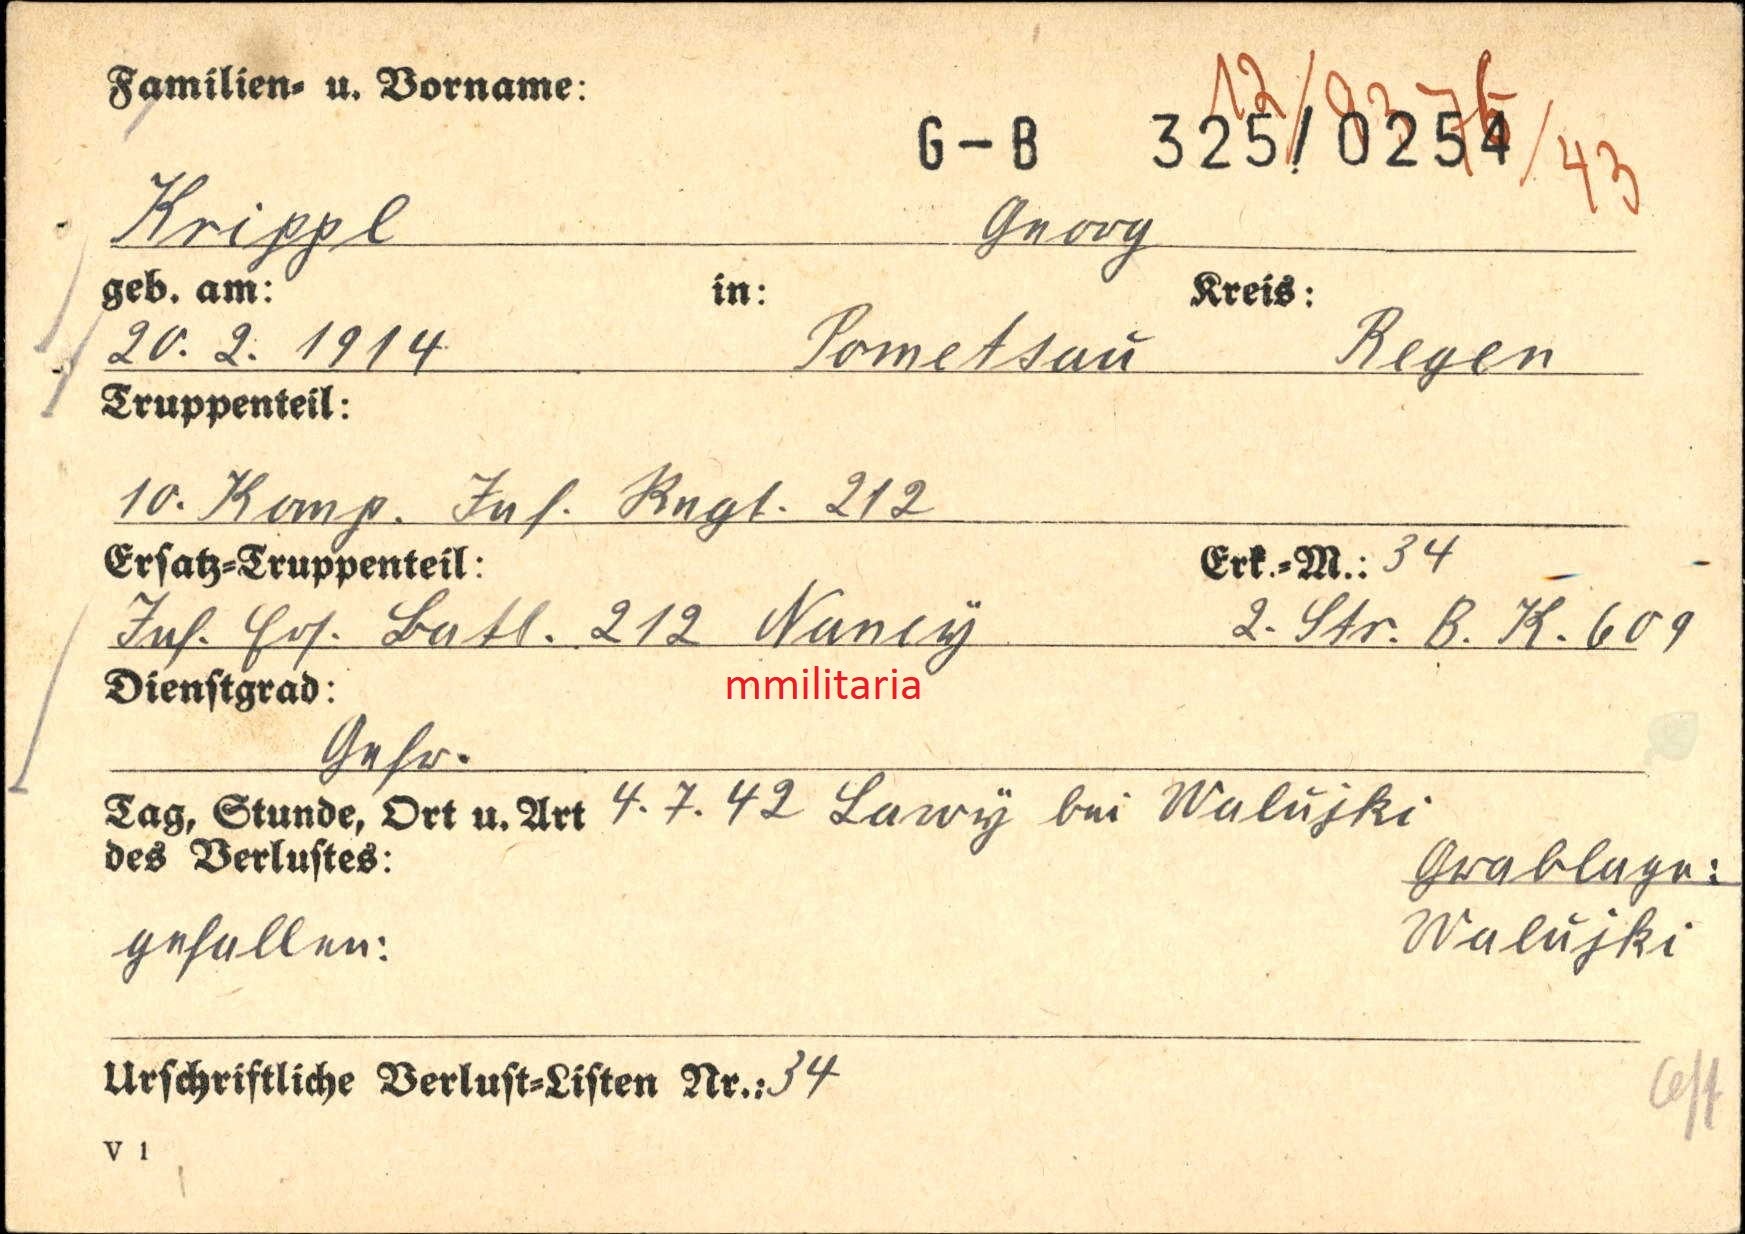 Familien- u. Vorname:
12/9375/43
G-B 325/0254
Krippl Georg
geb. am: in: Kreis:
20. 2. 1914 Pometsau Regen
Truppenteil:
10. Komp. Inf. Regt. 212
Ersatz-Truppenteil: Erk.-M.: 34
Inf. Ers. Batl. 212 Nancy 2. Str. B. K. 609
Dienstgrad:
mmilitaria
Gefr.
Tag, Stunde, Ort u. Art 4. 7. 42 Lawy bei Walujki
des Verlustes:
Grablage:
gefallen: Walujki
Urschriftliche Verlust-Listen Nr.: 34
V 1